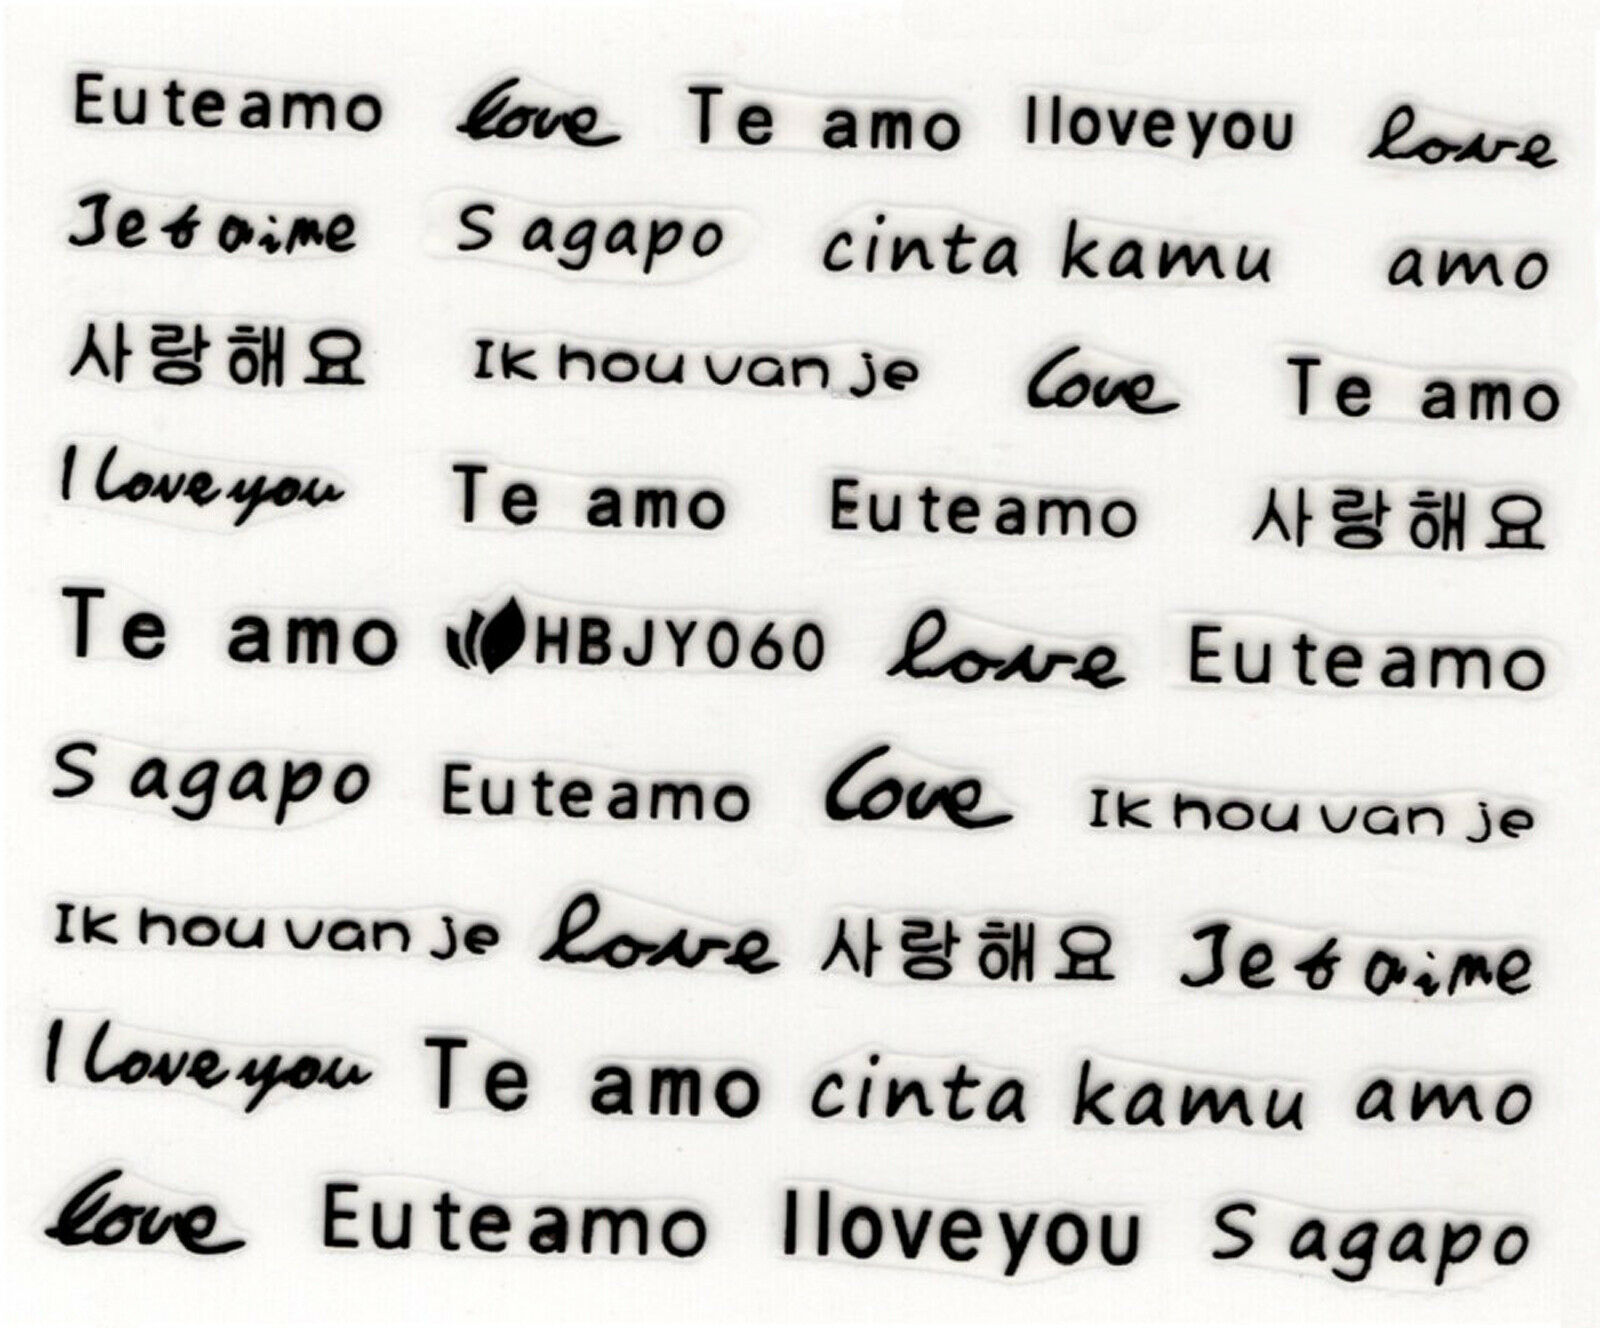 Eu te amo love Te amo I love you love
Je t aime S agapo cinta kamu amo
사랑해요 Ik hou van je love Te amo
I love you Te amo Eu te amo 사랑해요
Te amo HBJY060 love Eu te amo
S agapo Eu te amo love Ik hou van je
Ik hou van je love 사랑해요 Je t aime
I love you Te amo cinta kamu amo
love Eu te amo I love you S agapo